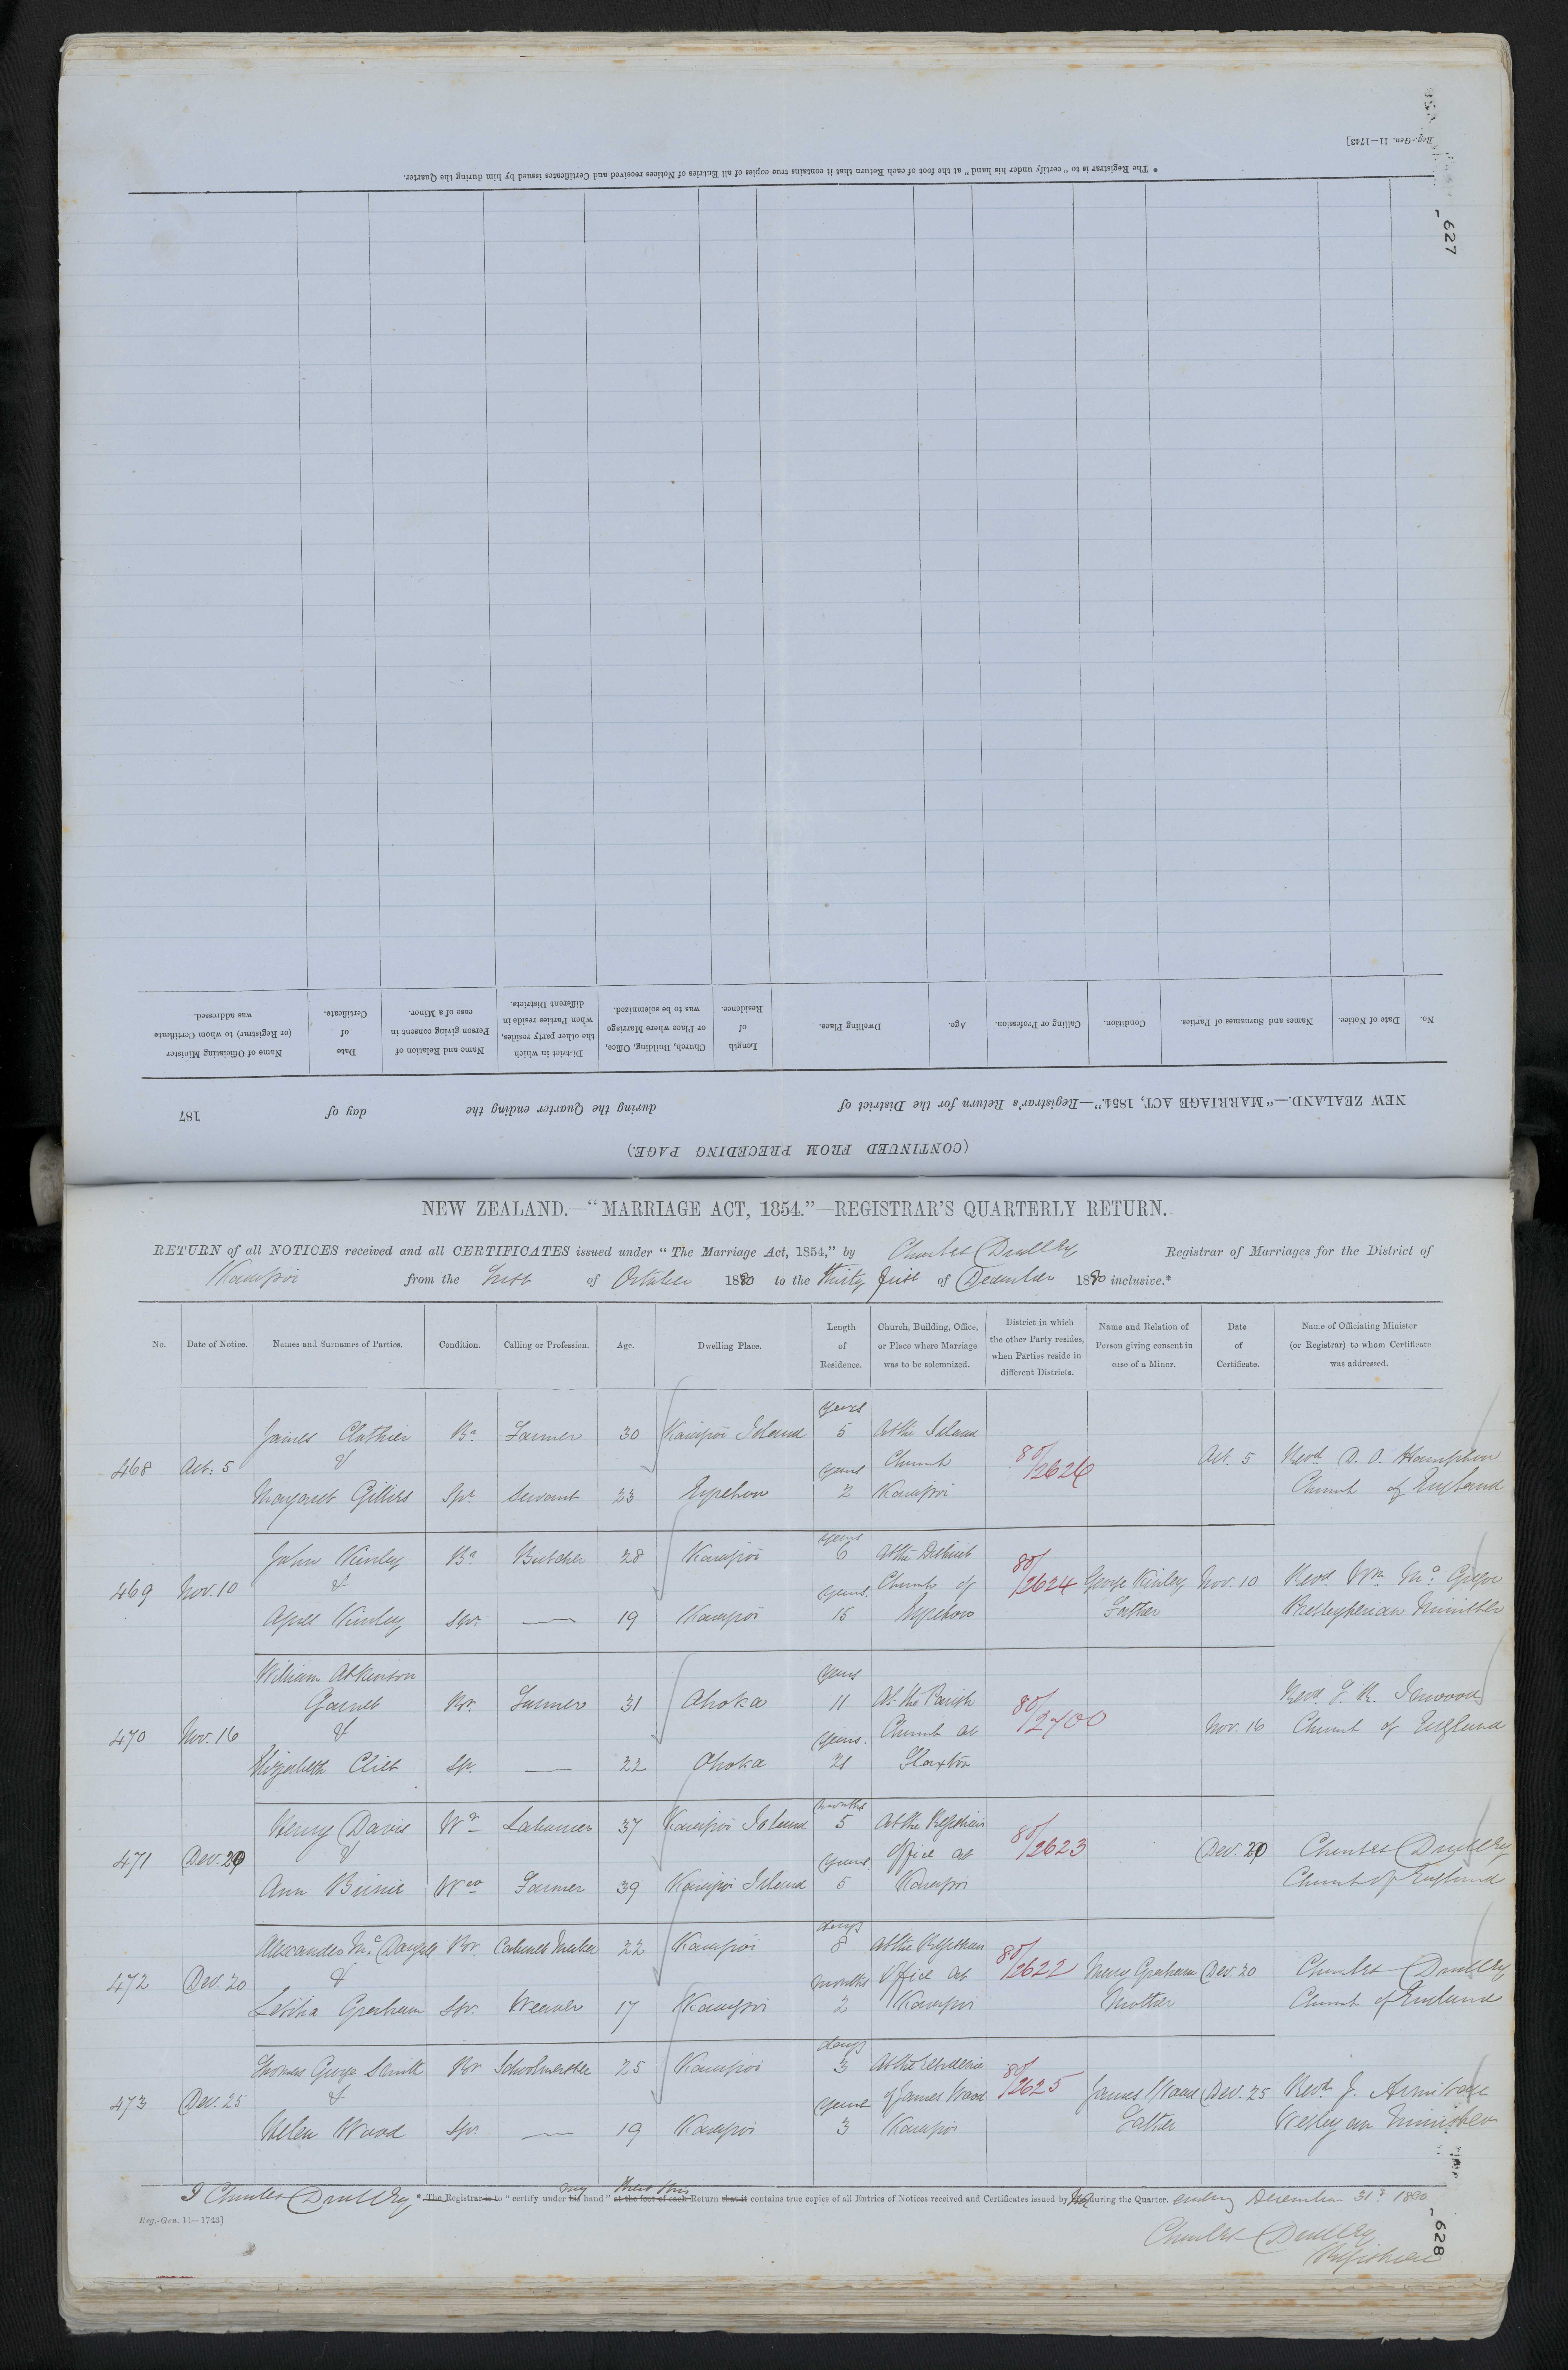 Reg.-Gen. 11—1743]
627
* The Registrar is to "certify under his hand" at the foot of each Return that it contains true copies of all Entries of Notices received and Certificates issued by him during the Quarter.
(CONTINUED FROM PRECEDING PAGE.)
NEW ZEALAND.—"MARRIAGE ACT, 1854."—Registrar's Return for the District of during the Quarter ending the day of 187
No. Date of Notice. Names and Surnames of Parties. Condition. Calling or Profession. Age. Dwelling Place. Length of Residence. Church, Building, Office, or Place where Marriage was to be solemnized. District in which the other party resides, when Parties reside in different Districts. Name and Relation of Person giving consent in case of a Minor. Date of Certificate. Name of Officiating Minister (or Registrar) to whom Certificate was addressed.
NEW ZEALAND.—"MARRIAGE ACT, 1854."—REGISTRAR'S QUARTERLY RETURN.
RETURN of all NOTICES received and all CERTIFICATES issued under "The Marriage Act, 1854," by Charles Dudley Registrar of Marriages for the District of
Kaiapoi from the first of October 1880 to the thirty first of December 1880 inclusive.*
No. Date of Notice. Names and Surnames of Parties. Condition. Calling or Profession. Age. Dwelling Place. Length of Residence. Church, Building, Office, or Place where Marriage was to be solemnized. District in which the other Party resides, when Parties reside in different Districts. Name and Relation of Person giving consent in case of a Minor. Date of Certificate. Name of Officiating Minister (or Registrar) to whom Certificate was addressed.
years
James Clothier Br. Farmer 30 Kaiapoi Island 5 At the Island
468 Oct. 5 & years Church 80/2626 Oct. 5 Revd. D. O. Hampton
Margaret Gillies Spr. Servant 23 Eyreton 2 Kaiapoi Church of England
years
John Kinley Br. Butcher 28 Kaiapoi 6 At the District
469 Nov. 10 & years Church of 80/2624 George Kinley Nov. 10 Revd. Wm. McGregor
Agnes Kinley Spr. — 19 Kaiapoi 15 Eyreton Father Presbyterian Minister
William Atkinson years
Garnet Br. Farmer 31 Ohoka 11 At the Parish
470 Nov. 16 & years. Church at 80/2700 Nov. 16 Church of England
Elizabeth Clist Sp. — 22 Ohoka 21 Flaxton
months
Henry Davis Wr. Labourer 37 Kaiapoi Island 5 At the Registrars
471 Dec. 20 & years Office at 80/2623 Dec. 20 Charles Dudley
Ann Wow Farmer 39 Kaiapoi Island 5 Kaiapoi Church of England
days
Alexander McDougall Br. Cabinet Maker 22 Kaiapoi 8 At the Registrars
472 Dec. 20 & months Office at 80/2622 Mary Graham Dec. 20 Charles Dudley
Letitia Graham Spr. Weaver 17 Kaiapoi 2 Kaiapoi Mother Church of England
days
Thomas George Smith Br Schoolmaster 25 Kaiapoi 3 At the residence
473 Dec. 25 & years of James Wood 80/2625 James Wood Dec. 25 Revd. J. Armitage
Helen Wood Spr. — 19 Kaiapoi 3 Kaiapoi Father Wesleyan Minister
I Charles Dudley * The Registrar is to "certify under his my hand" at the foot of each Return that it contains true copies of all Entries of Notices received and Certificates issued by me during the Quarter. ending December 31st 1880
Reg.-Gen. 11—1743]
Charles Dudley
Registrar
628